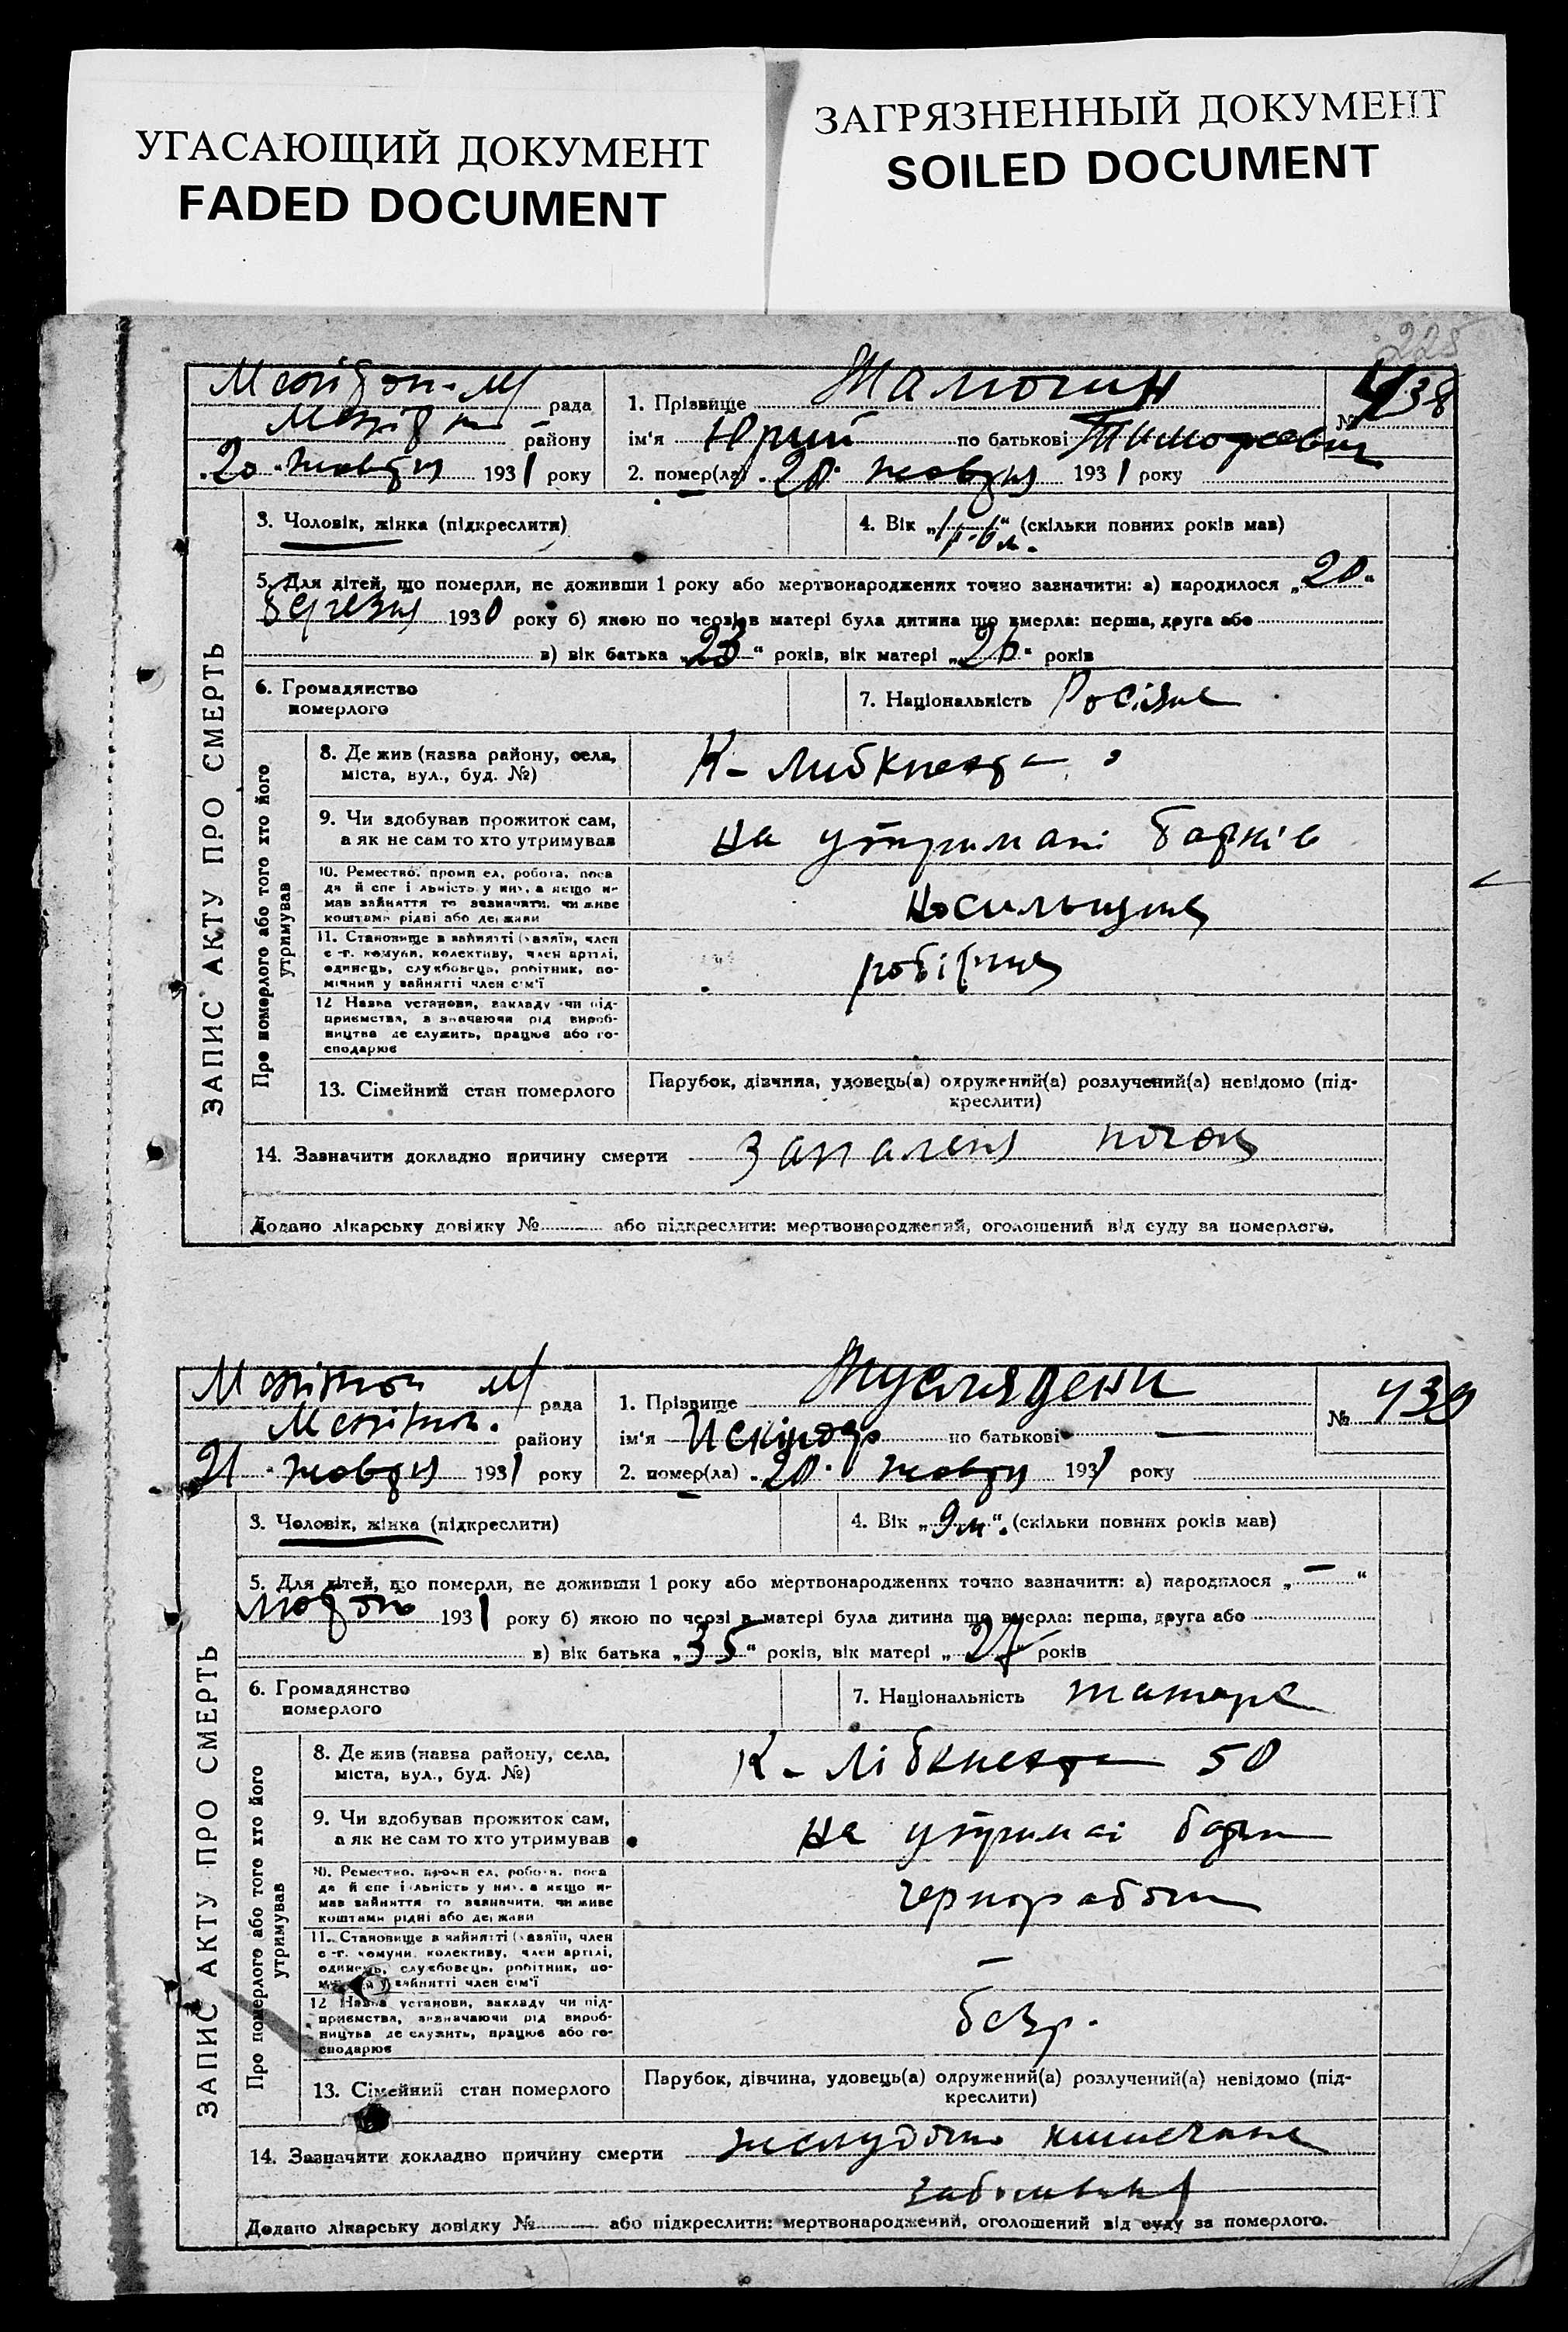 УГАСАЮЩИЙ ДОКУМЕНТ
FADED DOCUMENT
ЗАГРЯЗНЕННЫЙ ДОКУМЕНТ
SOILED DOCUMENT
225
ЗАПИС АКТУ ПРО СМЕРТЬ
рада
району
"20" жовтня 1931 року
1. Прізвище
№ 438
ім'я Юрий по батькові Тимофеевич
2. помер(ла) "20" жовтня 1931 року
3. Чоловік, жінка (підкреслити)
4. Вік (скільки повних років мав)
5. Для дітей, що померли, не доживши 1 року або мертвонароджених точно зазначити: а) народилося „20“
березня 1930 року б) якою по черзі в матері була дитина що вмерла: перша, друга або
в) вік батька „23“ років, вік матері „26“ років
6. Громадянство
померлого
7. Національність Росіяне
Про померлого або того хто його
утримував
8. Де жив (назва району, села,
міста, вул., буд. №)
К- Либкнехта
9. Чи здобував прожиток сам,
а як не сам то хто утримував
на утримані батьків
10. Ремество, промисел, робота, поса
да й спеціальність у них, а якщо не
мав зайняття то зазначити, чи живе
коштами рідні або держави
носильщик
11. Становище в зайнятті (хазяїн, член
с.-г. комуни, колективу, член артілі,
одинець, службовець, робітник, по-
мічний у зайнятті член сім'ї
робітник
12 Назва установи, закладу чи під-
приємства, зазначаючи рід вироб-
ництва де служить, працює або го-
сподарює
13. Сімейний стан померлого
Парубок, дівчина, удовець(а) одружений(а) розлучений(а) невідомо (під-
креслити)
14. Зазначити докладно причину смерти запалення почок
Додано лікарську довідку № або підкреслити: мертвонароджений, оголошений від суду за померлого.
ЗАПИС АКТУ ПРО СМЕРТЬ
рада
району
21 жовтня 1931 року
1. Прізвище
№ 439
ім'я по батькові —
2. помер(ла) "20" жовтня 1931 року
3. Чоловік, жінка (підкреслити)
4. Вік „9 м“. (скільки повних років мав)
5. Для дітей, що померли, не доживши 1 року або мертвонароджених точно зазначити: а) народилося „—“
1931 року б) якою по черзі в матері була дитина що вмерла: перша, друга або
в) вік батька „35“ років, вік матері „27“ років
6. Громадянство
померлого
7. Національність татаре
Про померлого або того хто його
утримував
8. Де жив (назва району, села,
міста, вул., буд. №)
К- Лібкнехта 50
9. Чи здобував прожиток сам,
а як не сам то хто утримував
на утримані батьк
10. Ремество, промисел, робота, поса
да й спеціальність у них, а якщо не
мав зайняття то зазначити, чи живе
коштами рідні або держави
чернораб
11. Становище в зайнятті (хазяїн, член
с.-г. комуни, колективу, член артілі,
одинець, службовець, робітник, по-
мічний у зайнятті член сім'ї
—
12 Назва установи, закладу чи під-
приємства, зазначаючи рід вироб-
ництва де служить, працює або го-
сподарює
безр.
13. Сімейний стан померлого
Парубок, дівчина, удовець(а) одружений(а) розлучений(а) невідомо (під-
креслити)
14. Зазначити докладно причину смерти
Додано лікарську довідку № або підкреслити: мертвонароджений, оголошений від суду за померлого.